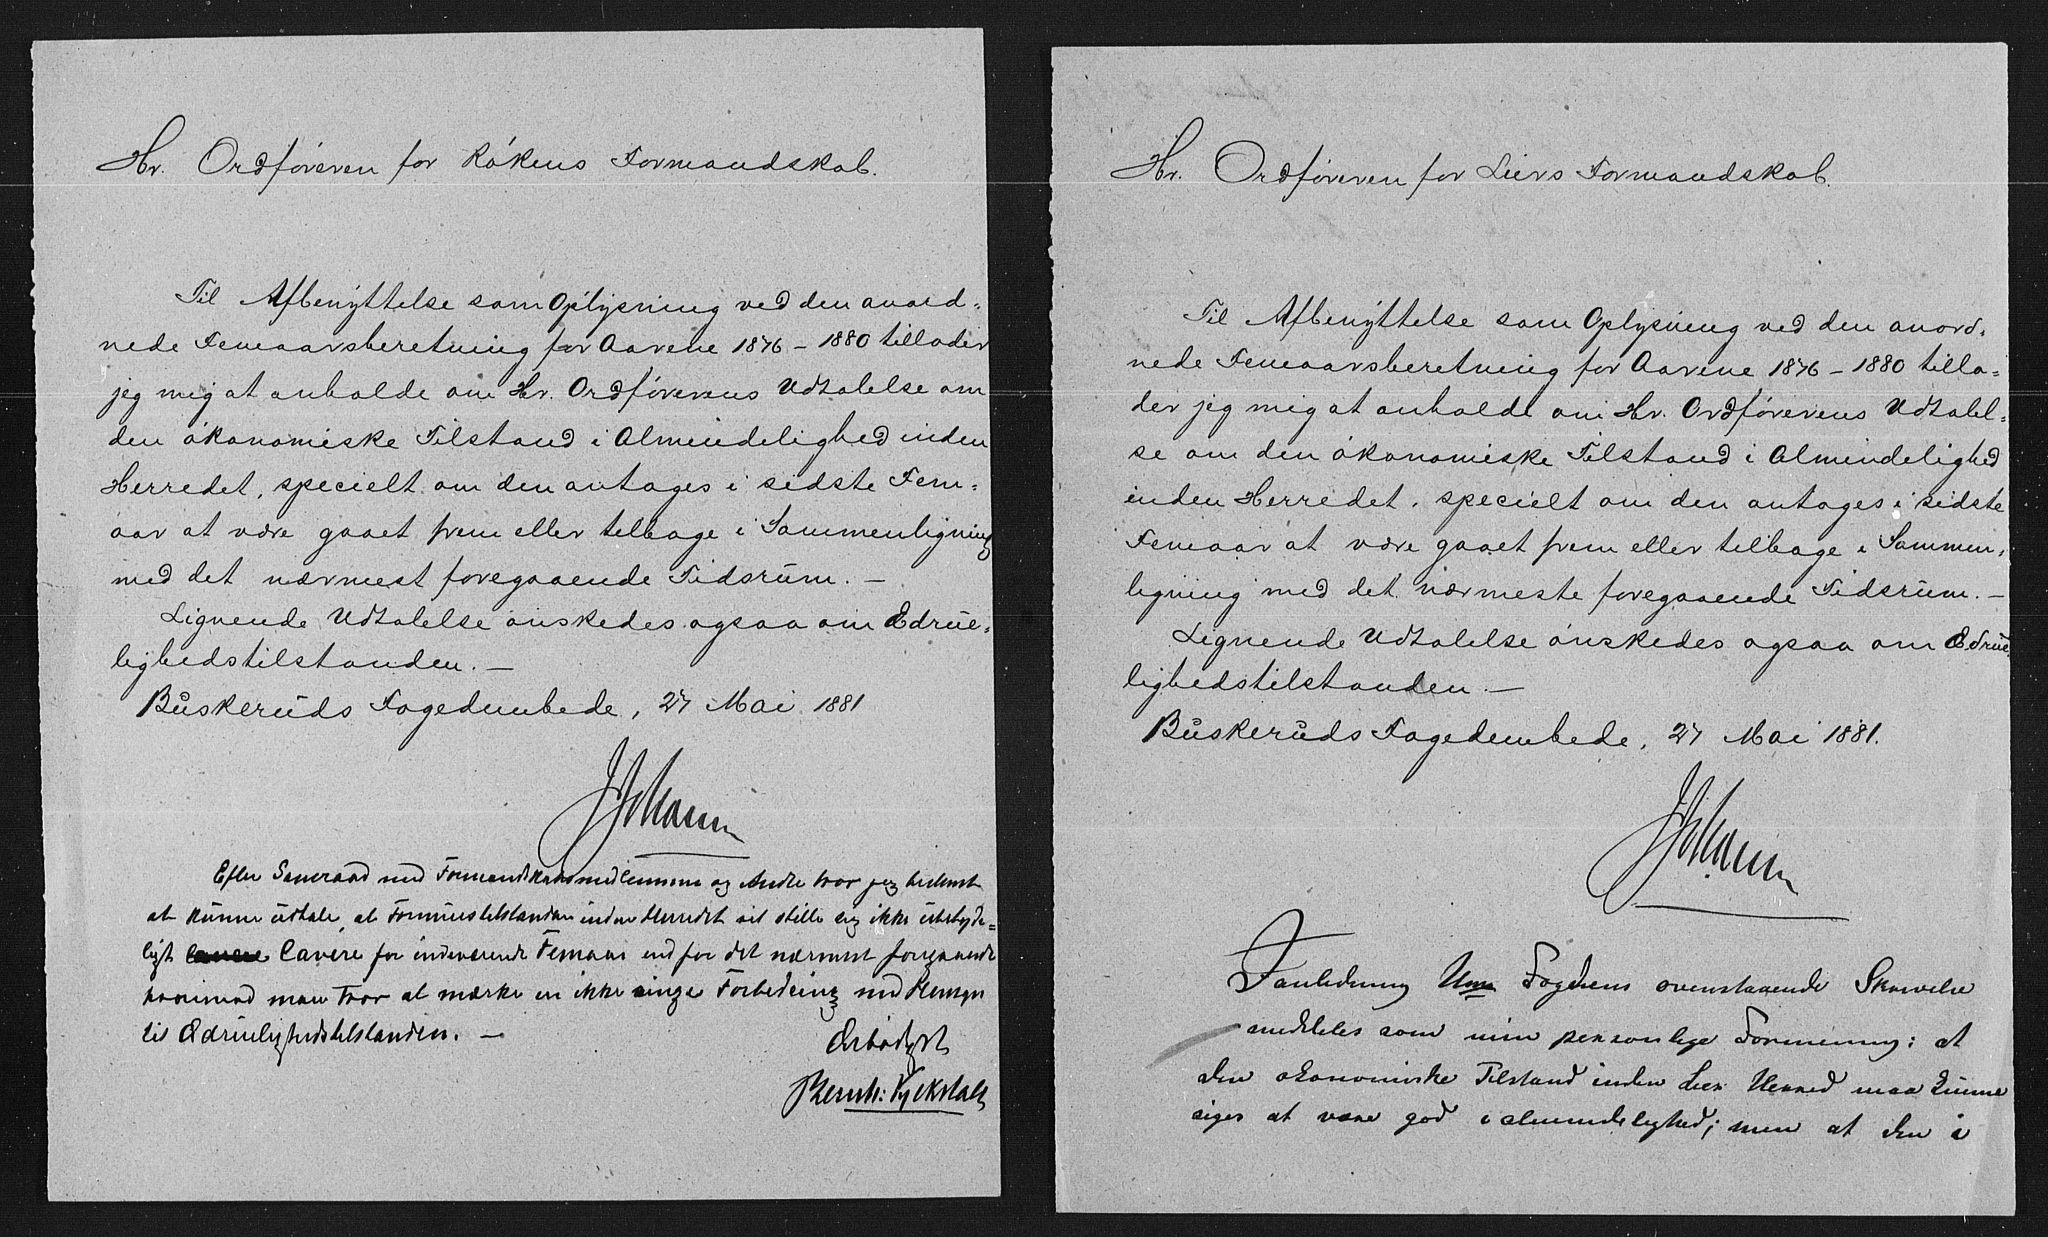 Hr. Ordføreren for Rökens Formandskab.
Til Afbenyttelse som Oplysning ved den anord-
nede Femaarsberetning for Aarene 1876 – 1880 tillader
jeg mig at anholde om Hr. Ordførerens Udtalelse om
den økonomiske Tilstand i Almindelighed inden
Herredet, specielt om den antages i sidste Fem-
aar at være gaaet frem eller tilbage i Sammenligning
med det nærmest foregaaende Tidsrum. –
Lignende Udtalelse ønskedes ogsaa om Ædrue-
lighedstilstanden. –
Buskeruds Fogedembede, 27 Mai 1881
Efter Samraad med Formandskabsmedlemmerne og Andre tror jeg bestemt
at kunne udtale, at Formuestilstanden inden Herredet vil stille sig ikke ubetyde-
ligt lavere for indeværende Femaar end for det nærmest foregaaende
hvorimod man tror at mærke en ikke ringe Forbedring med Hensyn
til Ædruelighedstilstanden. –
Ærbødigst
Hr. Ordføreren for Liers Formandskab.
Til Afbenyttelse som Oplysning ved den anord-
nede Femaarsberetning for Aarene 1876 – 1880 tilla-
der jeg mig at anholde om Hr. Ordførerens Udtalel-
se om den økonomiske Tilstand i Almindelighed
inden Herredet, specielt om den antages i sidste
Femaar at være gaaet frem eller tilbage i Sammen-
ligning med det nærmeste foregaaende Tidsrum. –
Lignende Udtalelse ønskedes ogsaa om Ædrue-
lighedstilstanden. –
Buskeruds Fogedembede, 27 Mai 1881.
I anledning Fogdens ovenstaaende Skrivelse
meddeles som min personlige Formening: at
den økonomiske Tilstand inden Lier Herred maa kunne
siges at være god i almindelighed; men at den i